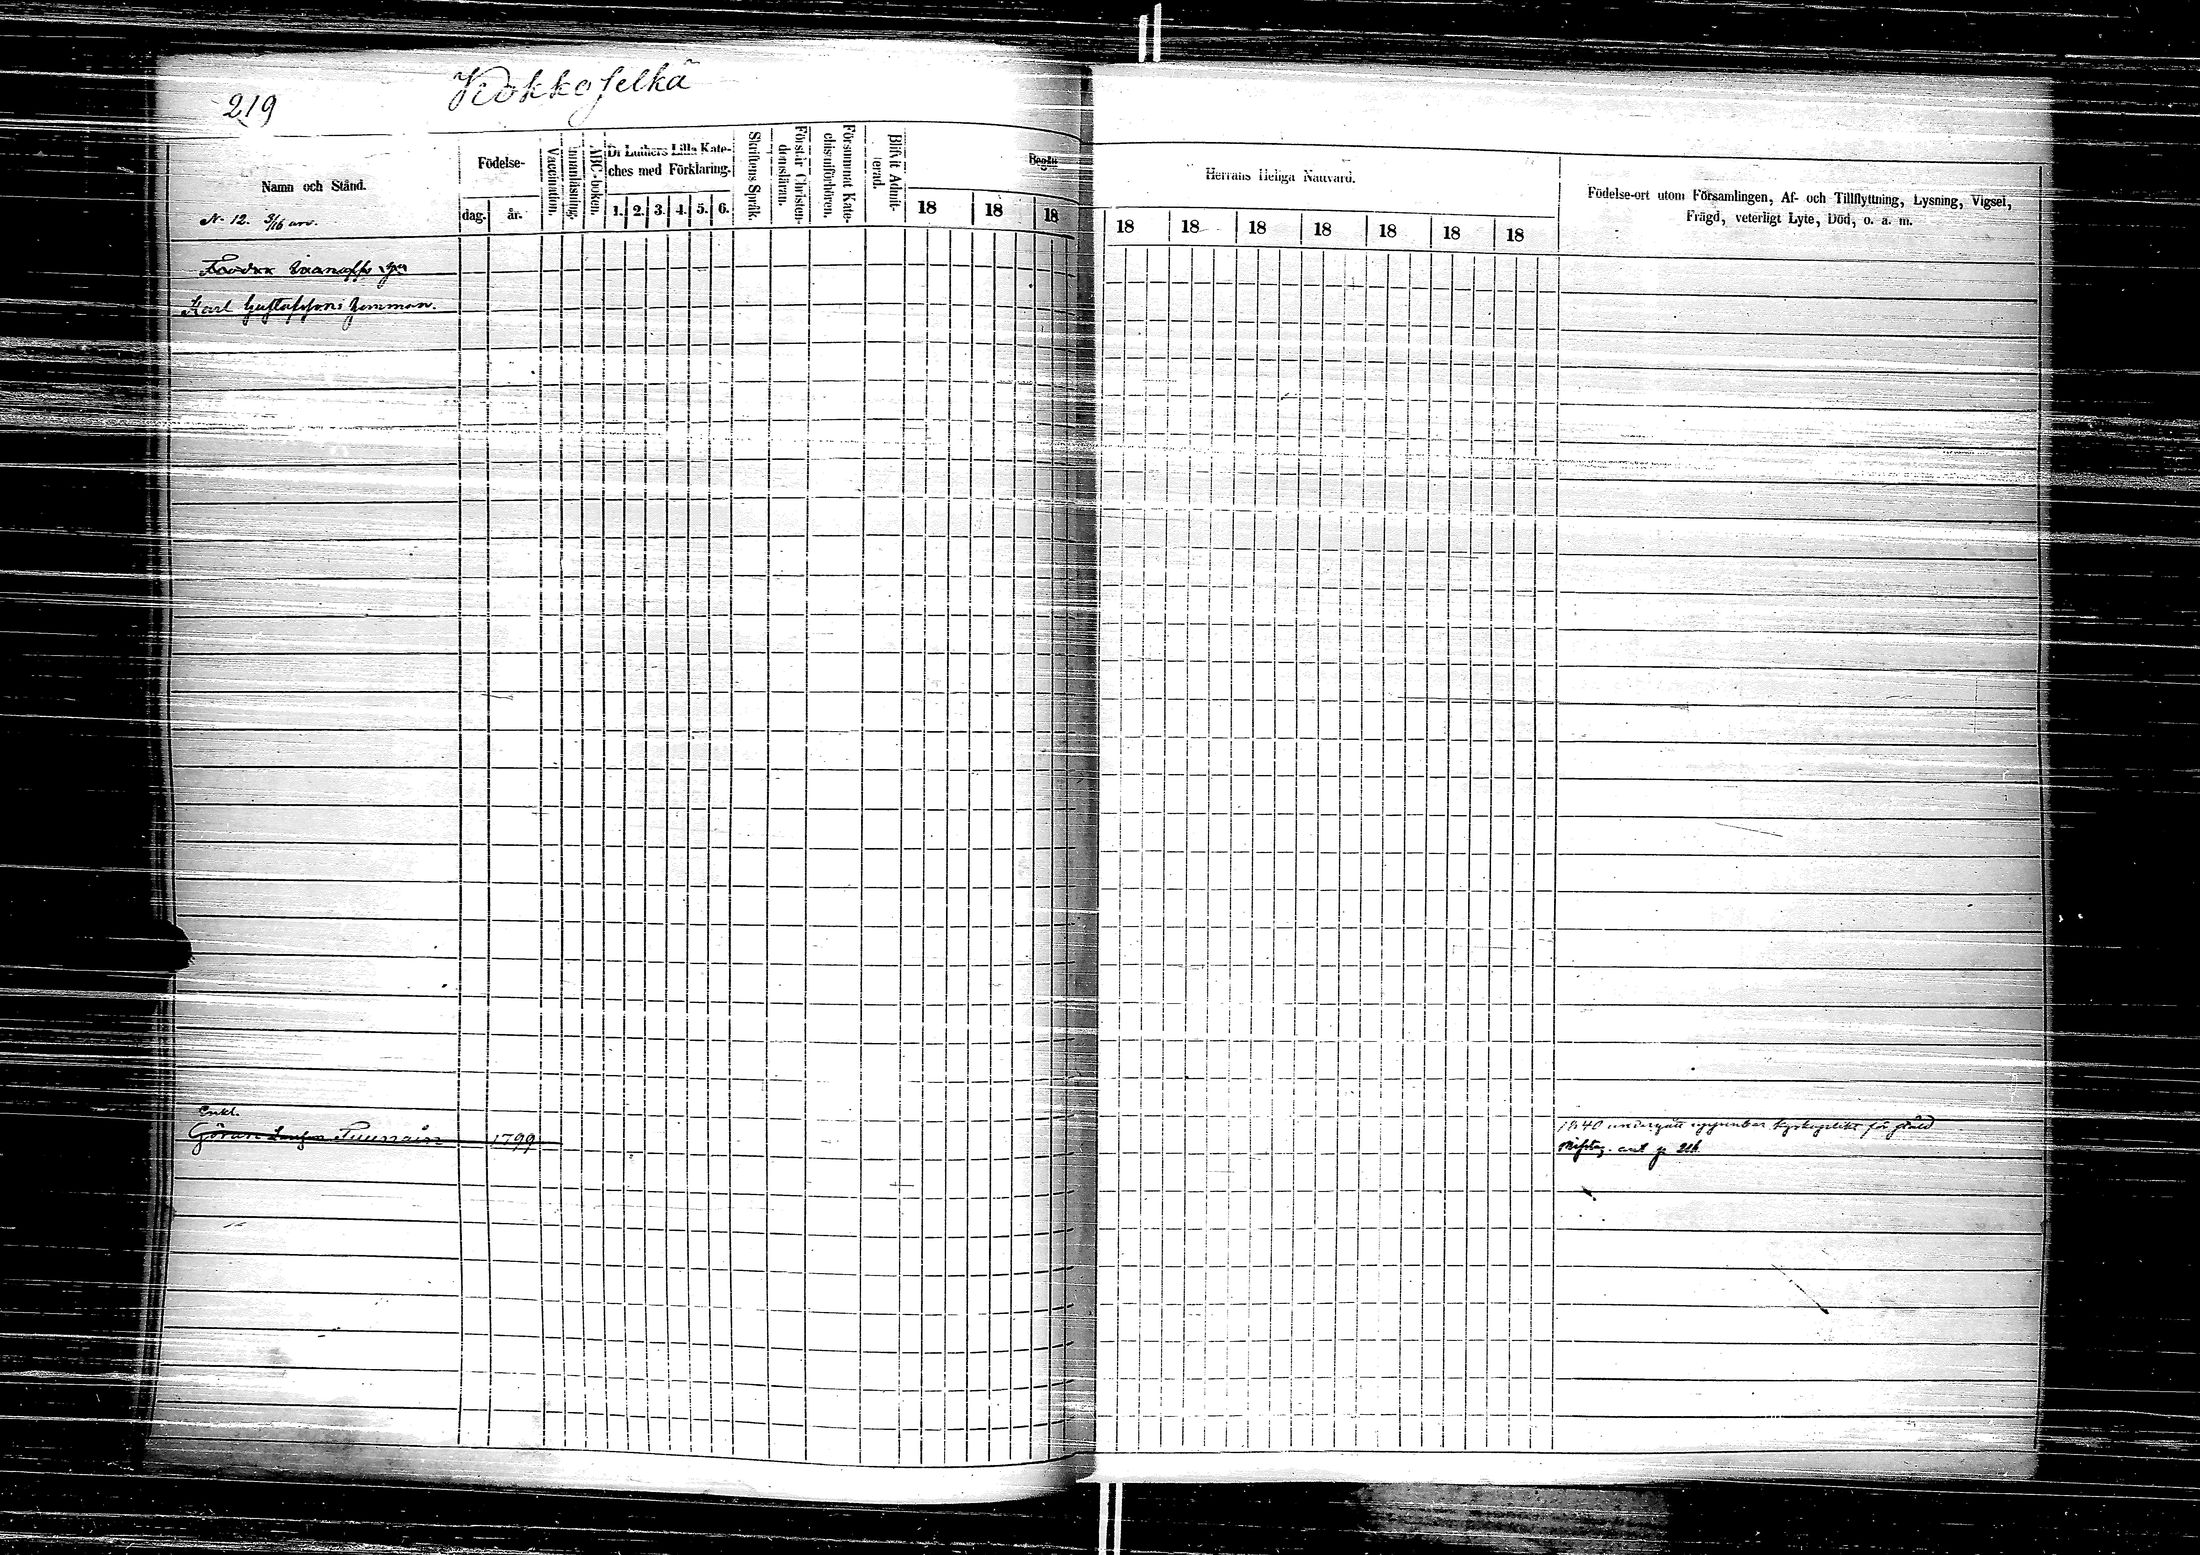 219
Kokkoselkä
Namn och Stånd.
Födelse-
dag.
år.
Vaccination.
Innanläsning.
ABC-boken.
Dr Luthers Lilla Kate-
ches med Förklaring.
1. 2. 3. 4. 5. 6.
Skriftens Språk.
Förstår Christen-
domsläran.
Försummat Kate-
chismiförhören.
Blifvit Admit-
terad.
Begått
18 18 18
Herrans Heliga Nattvard.
18 18 18 18 18 18 18
Födelse-ort utom Församlingen, Af- och Tillflyttning, Lysning, Vigsel,
Frägd, veterligt Lyte, Död, o. a. m.
N. 12. 3/16
Karl Gustafssons hemman.
Enkl.
Göran Tuunain 1799
1840 undergått uppenbar kyrkoplikt för